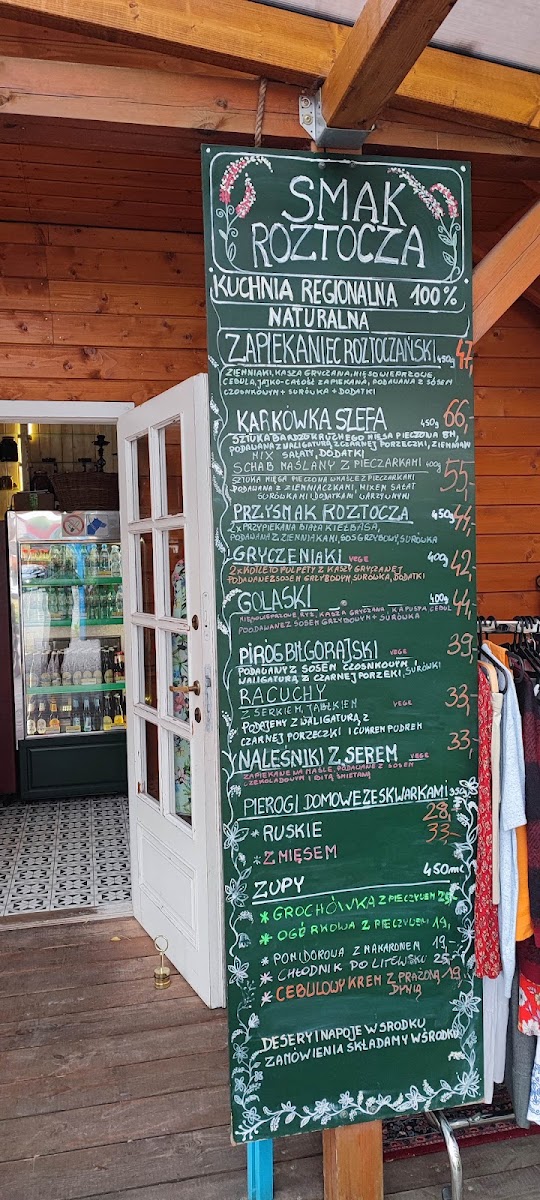 SMAK
ROZTOCZA
KUCHNIA REGIONALNA 100%
NATURALNA
ZAPIEKANIEC ROZTOCZAŃSKI 450g 47,
ZIEMNIAKI, KASZA GRYCZANA, MIĘSO WIEPRZOWE,
CEBULA, JAJKO-CAŁOŚĆ ZAPIEKANA, PODAWANA Z SOSEM
CZOSNKOWYM + SURÓWKA + DODATKI
KARKÓWKA SZEFA 450g 66,
SZTUKA BARDZO KRUCHEGO MIĘSA PIECZONA 8H,
PODAWANA Z WALIGATURĄ Z CZARNEJ PORZECZKI, ZIEMNIAKI
MIX SAŁATY, DODATKI
SCHAB MAŚLANY Z PIECZARKAMI 400g 55,
SZTUKA MIĘSA PIECZONA W MAŚLE Z PIECZARKAMI
PODAWANA Z ZIEMNIACZKAMI, MIXEM SAŁAT
SURÓWKAMI, DODATKAMI WARZYWNYMI
PRZYSMAK ROZTOCZA 450g 44,
2x PRZYPIEKANA BIAŁA KIEŁBASA,
PODAWANA Z ZIEMNIAKAMI, SOS GRZYBOWY, SURÓWKA
GRYCZENIAKI VEGE 400g 42,
2x KOTLETO PULPETY Z KASZY GRYCZANEJ
PODAWANE Z SOSEM GRZYBOWYM SURÓWKA, DODATKI
GOŁĄSKI 400g 44,
MIĘSO WIEPRZOWE RYŻ, KASZA GRYCZANA, KAPUSTA CEBUL
POODAWANE Z SOSEM GRZYBOWYM + SURÓWKA
PIROG BIŁGORAJSKI VEGE 39,-
PODAWANY Z SOSEM CZOSNKOWYM I
WALIGATURĄ Z CZARNEJ PORZEKI, SURÓWKI
RACUCHY 33,-
Z SERKIEM, JABŁKIEM VEGE
PODAJEMY Z WALIGATURĄ Z
CZARNEJ PORZECZKI I CUKREM PUDREM
33-
NALEŚNIKI Z SEREM VEGE
ZAPIEKANE NA MAŚLE, PODAWANE Z SOSEM
CZEKOLADOWYM I BITĄ ŚMIETANĄ
PIEROGI DOMOWE ZE SKWARKAMI 350g
* RUSKIE 28,
* Z MIĘSEM 33,-
ZUPY 450ml
* GROCHÓWKA Z PIECZYWEM
* OGÓRKOWA Z PIECZYWEM 19,
* POMIDOROWA Z MAKARONEM 19,-
* CHŁODNIK PO LITEWSKU 25,-
* CEBULOWY KREM Z PRAŻONĄ 19
DYNIĄ
DESERY I NAPOJE W ŚRODKU
ZAMÓWIENIA SKŁADAMY W ŚRODKU